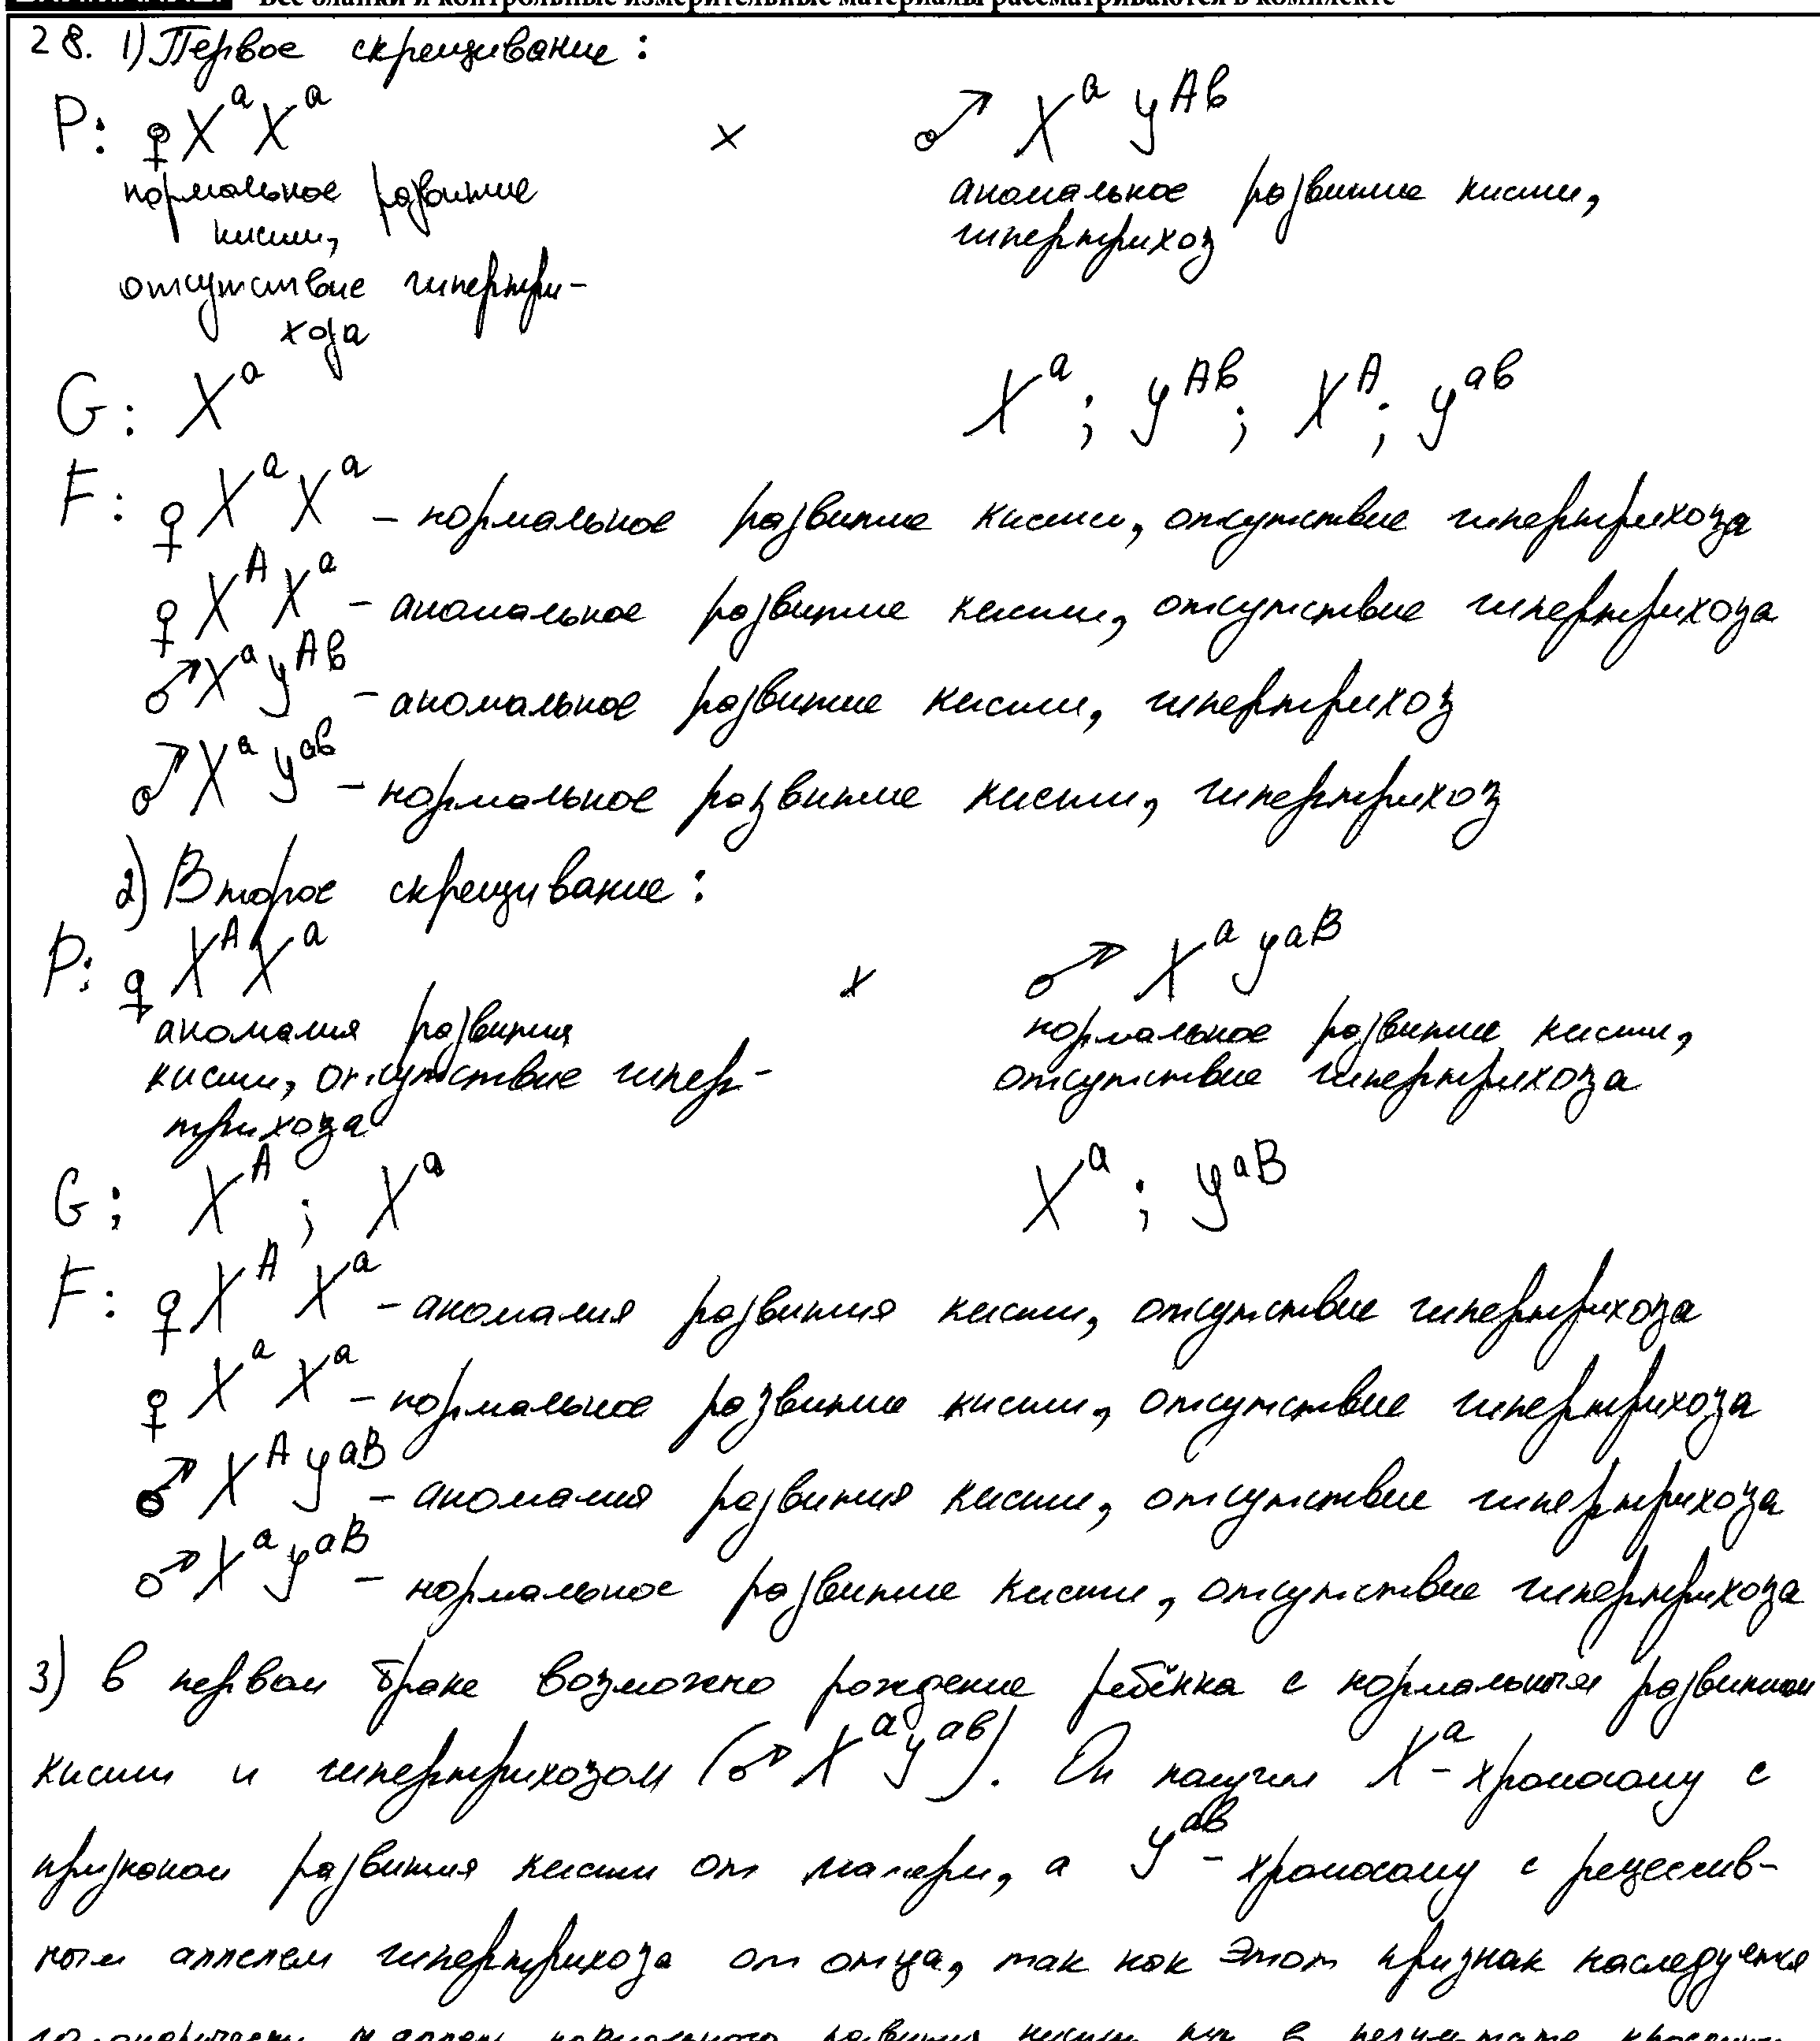 Все бланки и контрольные измерительные материалы рассматриваются в комплекте
28. 1) Первое скрещивание:
P: ♀ XᵃXᵃ × ♂ Xᵃ Yᴬᵇ
нормальное развитие аномальное развитие кисти,
кисти, гипертрихоз
отсутствие гипертри-
хоза
G: Xᵃ Xᵃ; Yᴬᵇ; Xᴬ; Yᵃᵇ
F: ♀ XᵃXᵃ – нормальное развитие кисти, отсутствие гипертрихоза
♀ XᴬXᵃ – аномальное развитие кисти, отсутствие гипертрихоза
♂ XᵃYᴬᵇ – аномальное развитие кисти, гипертрихоз
♂ XᵃYᵃᵇ – нормальное развитие кисти, гипертрихоз
2) Второе скрещивание:
P: ♀ XᴬXᵃ × ♂ Xᵃ Yᵃᴮ
аномалия развития нормальное развитие кисти,
кисти, отсутствие гипер- отсутствие гипертрихоза
трихоза
G: Xᴬ; Xᵃ Xᵃ; Yᵃᴮ
F: ♀ Xᴬ Xᵃ – аномалия развития кисти, отсутствие гипертрихоза
♀ Xᵃ Xᵃ – нормальное развитие кисти, отсутствие гипертрихоза
♂ XᴬYᵃᴮ – аномалия развития кисти, отсутствие гипертрихоза
♂ XᵃYᵃᴮ – нормальное развитие кисти, отсутствие гипертрихоза
3) в первом браке возможно рождение ребёнка с нормальным развитием
кисти и гипертрихозом (♂ XᵃYᵃᵇ). Он получил Xᵃ-хромосому с
признаком развития кисти от матери, а Yᵃᵇ-хромосому с рецессив-
ным аллелем гипертрихоза от отца, так как этот признак наследуется
аллель нормального развития кисти в результате